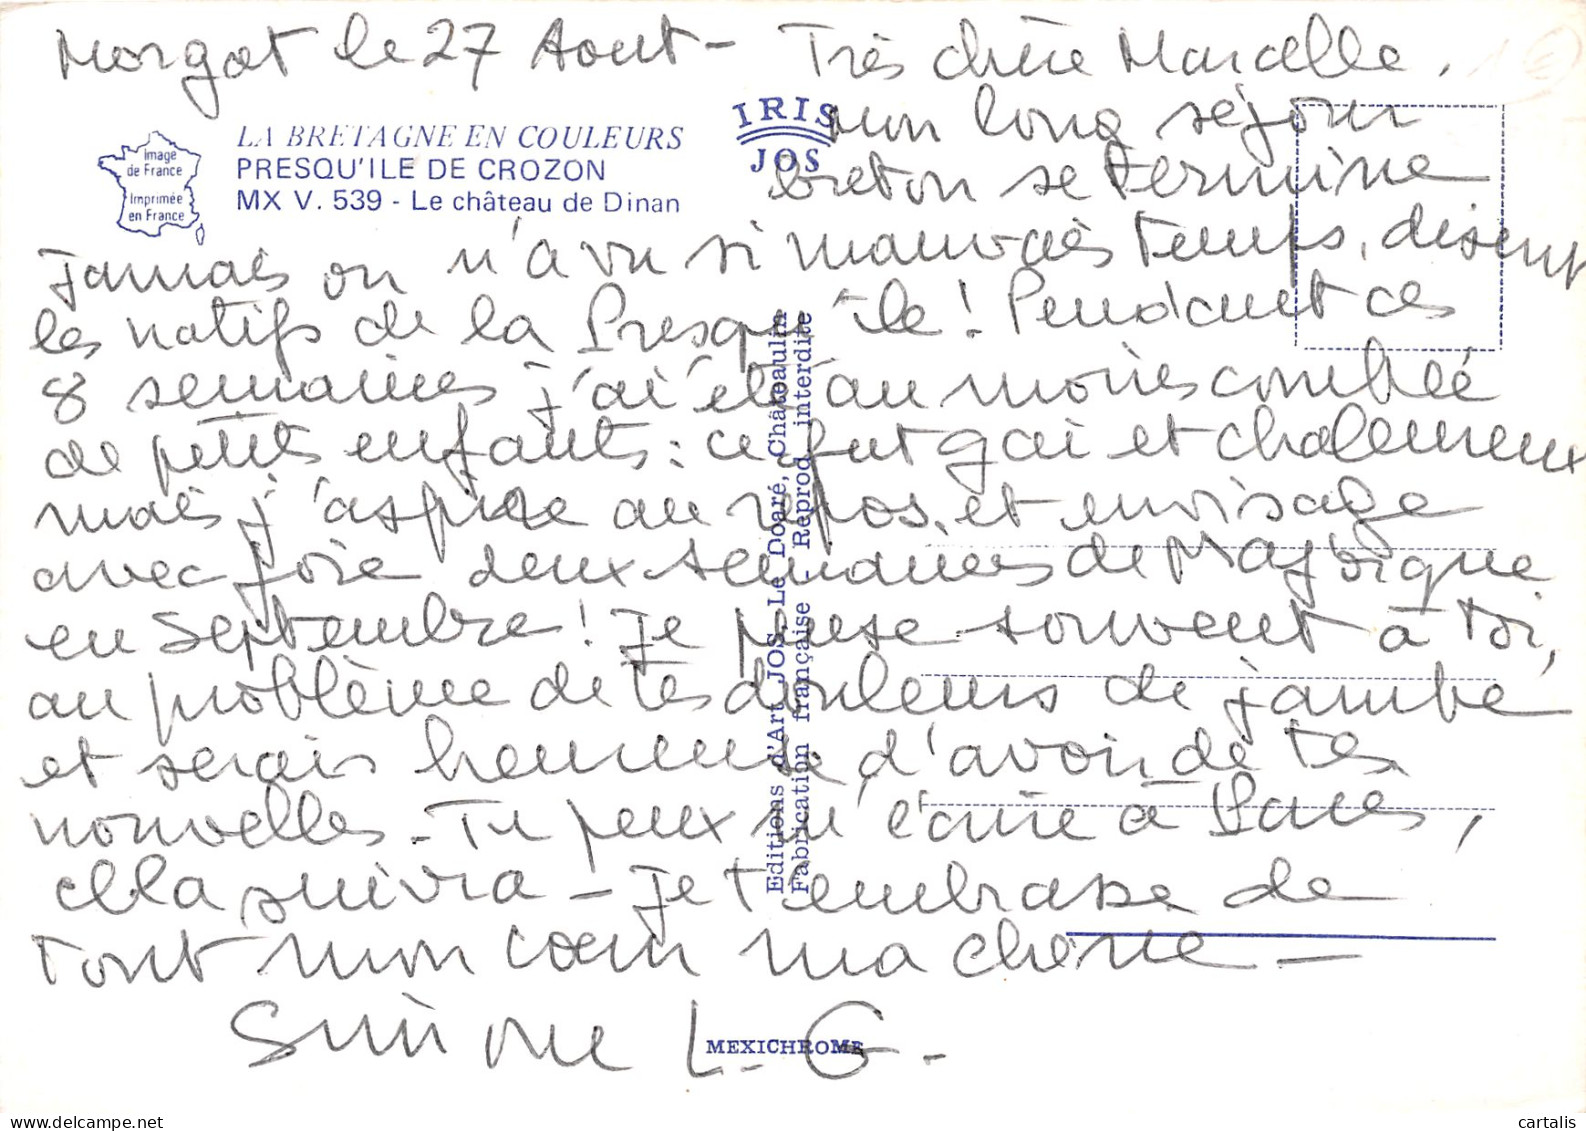 Morgat le 27 Aout - Très chère Marcelle,
mon long séjour
breton se termine
Jamais on n'a vu si mauvais temps, disent
les natifs de la Presqu'île ! Pendant ces
8 semaines j'ai été au moins comblée
de petits enfants : ce fut gai et chaleureux
mais j'aspire au repos, et envisage
avec joie deux semaines de
en Septembre ! Je pense souvent à toi,
au problème de tes douleurs de jambe
et serais heureuse d'avoir de tes
nouvelles - Tu peux m'écrire à Paris,
cela suivra - Je t'embrasse de
tout mon cœur ma chérie -
Simone L. G.
Image
de France
Imprimée
en France
LA BRETAGNE EN COULEURS
PRESQU'ILE DE CROZON
MX V. 539 - Le château de Dinan
IRIS
JOS
Editions d'Art JOS Le Doaré, Châteaulin
Fabrication française - Reprod. interdite
MEXICHROME
delcampe.net
cartalis